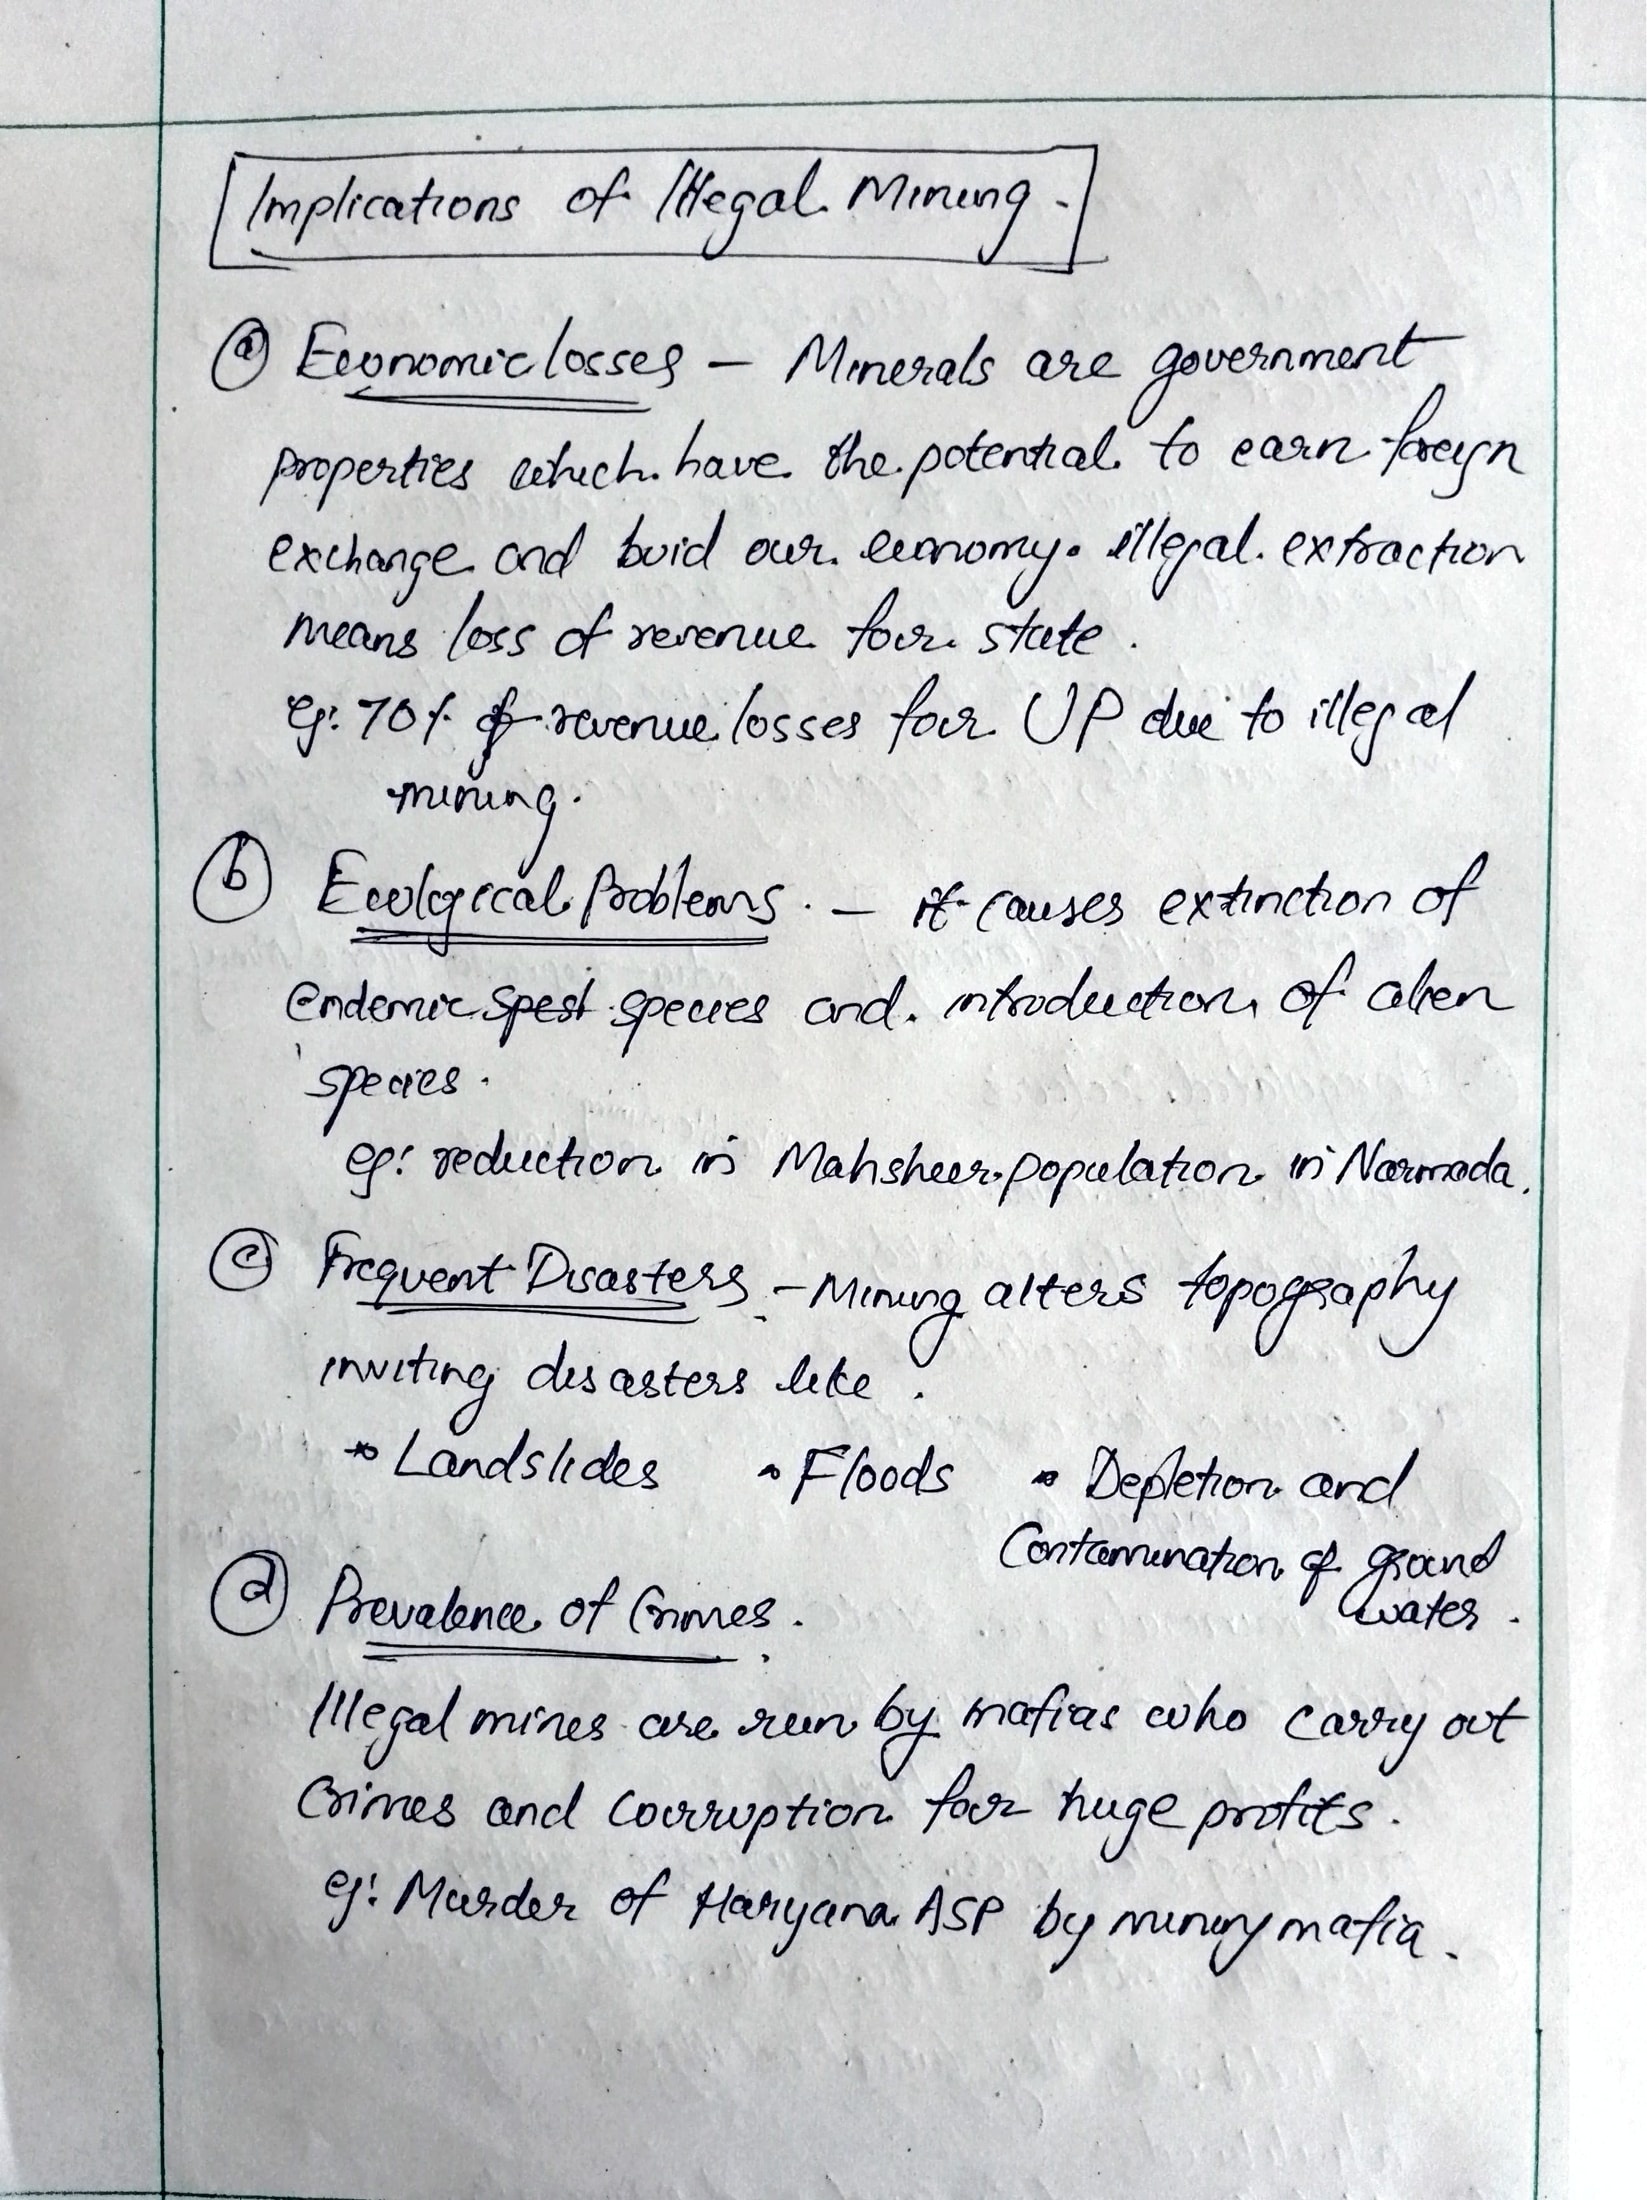 Implications of Illegal Mining.
(a) Economic losses – Minerals are government
properties which have the potential to earn foreign
exchange and buid our economy. illegal extraction
means loss of revenue for state.
eg: 70% of revenue losses for UP due to illegal
mining.
(b) Ecolgical Problems. – it causes extinction of
endemic spest species and introduction of alien
species.
eg: reduction in Mahsheer population in Narmada.
(c) Frequent Disasters. – Mining alters topography
inviting disasters like.
* Landslides * Floods * Depletion and
Contamination of ground
water.
(d) Prevalence of Crimes.
Illegal mines are run by mafias who carry out
Crimes and Corruption for huge profits.
eg: Murder of Haryana ASP by mining mafia.